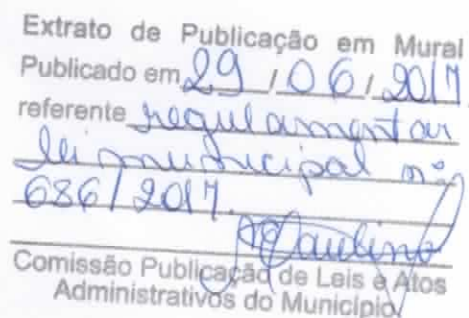 Extrato de Publicação em Mural
Publicado em 29 / 06 / 2017
referente regulamentar
lei municipal nº
686/2017.
Paulino
Comissão Publicação de Leis e Atos
Administrativos do Município